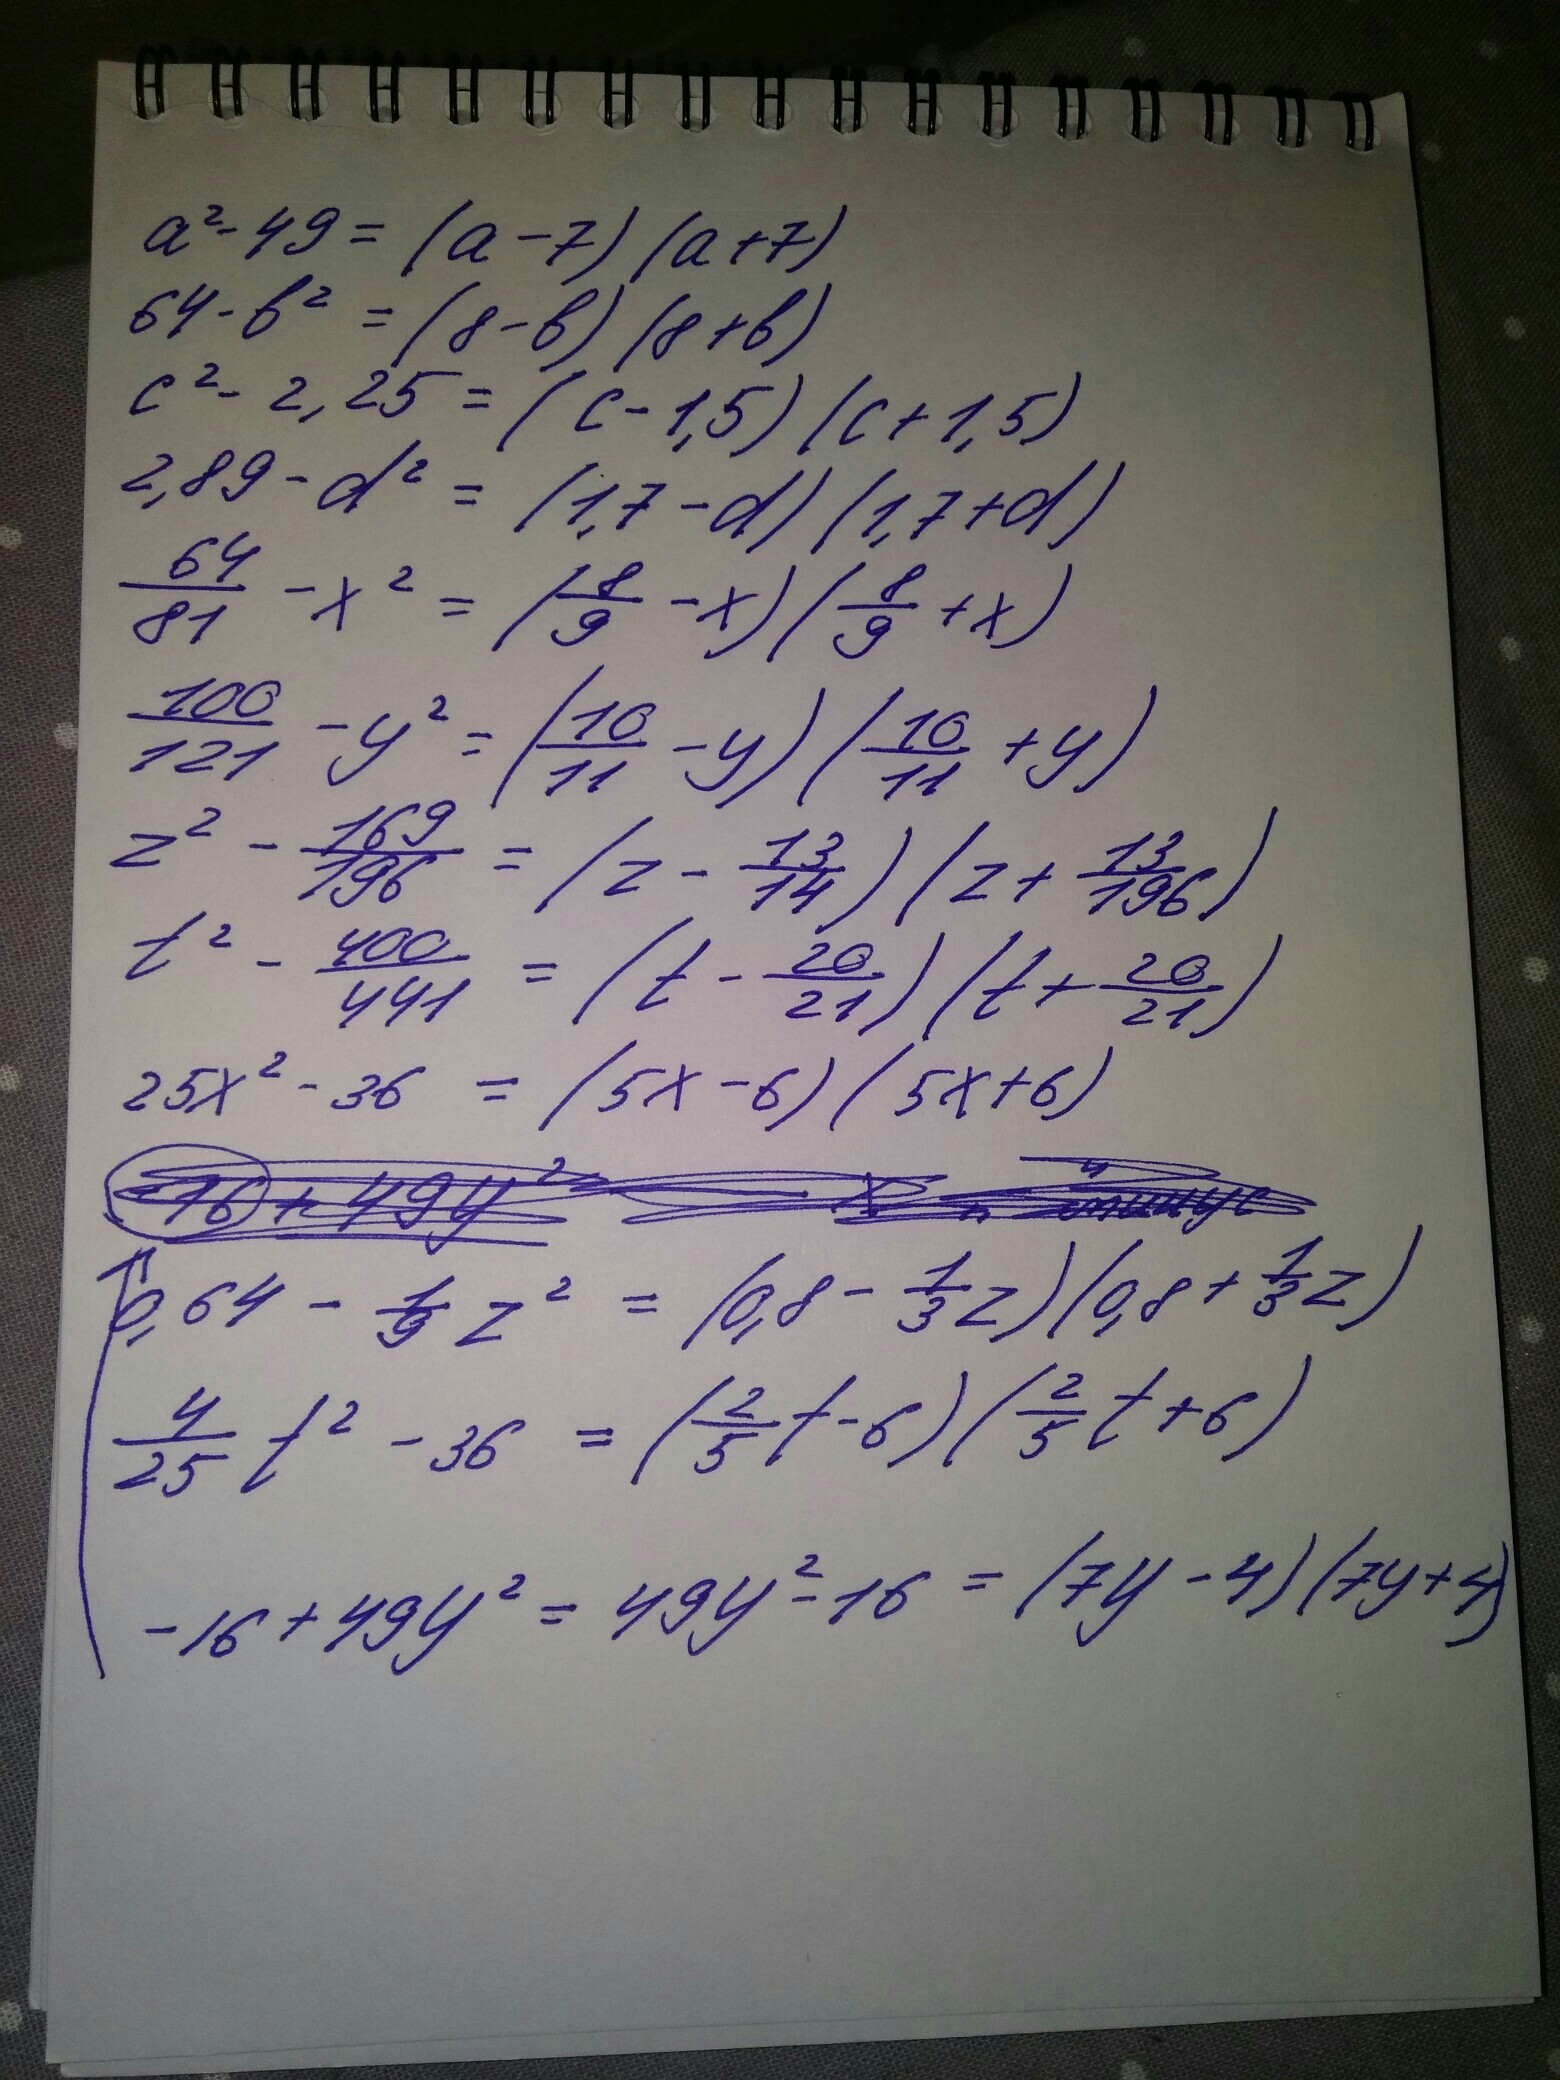 a² - 49 = (a - 7) (a + 7)
64 - b² = (8 - b) (8 + b)
c² - 2,25 = (c - 1,5) (c + 1,5)
2,89 - d² = (1,7 - d) (1,7 + d)
64/81 - x² = (8/9 - x) (8/9 + x)
100/121 - y² = (10/11 - y) (10/11 + y)
z² - 169/196 = (z - 13/14) (z + 13/196)
t² - 400/441 = (t - 20/21) (t + 20/21)
25x² - 36 = (5x - 6) (5x + 6)
-16 + 49y²
минус
0,64 - 1/9 z² = (0,8 - 1/3 z) (0,8 + 1/3 z)
4/25 t² - 36 = (2/5 t - 6) (2/5 t + 6)
-16 + 49y² = 49y² - 16 = (7y - 4) (7y + 4)